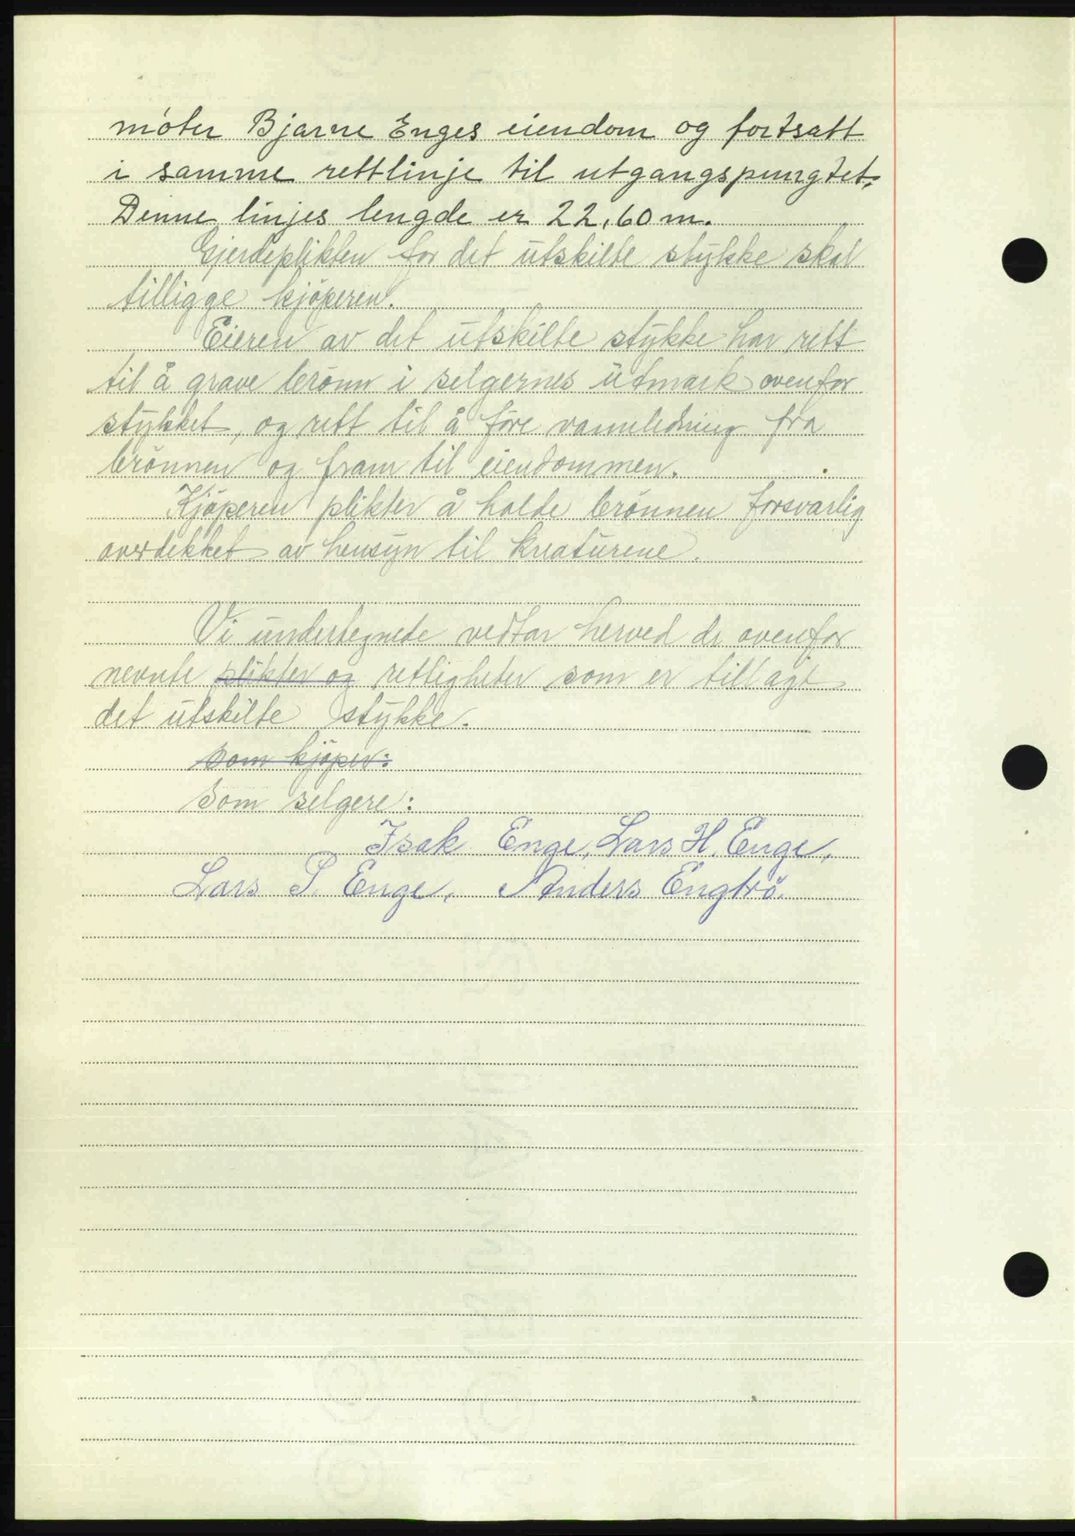 möter Bjarne Enges eiendom og fortsatt
i samme rettlinje til utgangspungtet.
Denne linjes lengde er 22,60 m.
Gjerdeplikten for det utskilte stykke skal
tilligge kjöperen.
Eieren av det utskilte stykke har rett
til å grave brönn i selgernes utmark ovenfor
stykket, og rett til å före vannledning fra
brönnen og fram til eiendommen.
Kjöperen plikter å holde brönnen forsvarlig
overdekket av hensyn til kreaturene.
Vi undertegnede vedtar herved de ovenfor
nevnte plikter og rettigheter som er tillagt
det utskilte stykke.
som kjöper:
Som selgere:
Isak Enge, Lars H. Enge,
Lars P. Enge, Anders Engtrö.